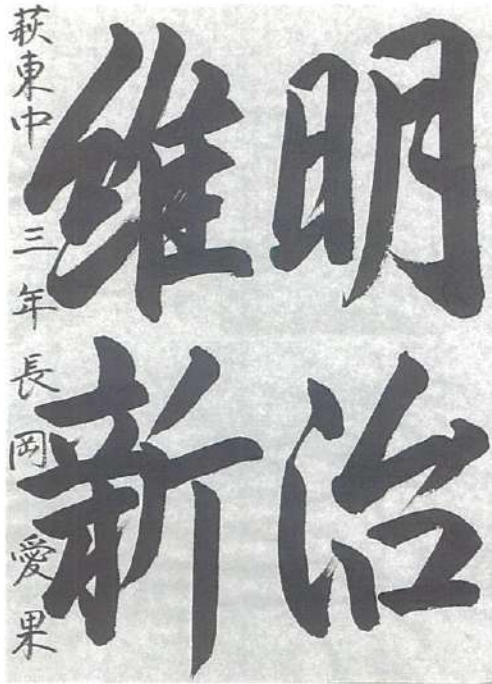 明治
維新
萩東中三年長岡愛果